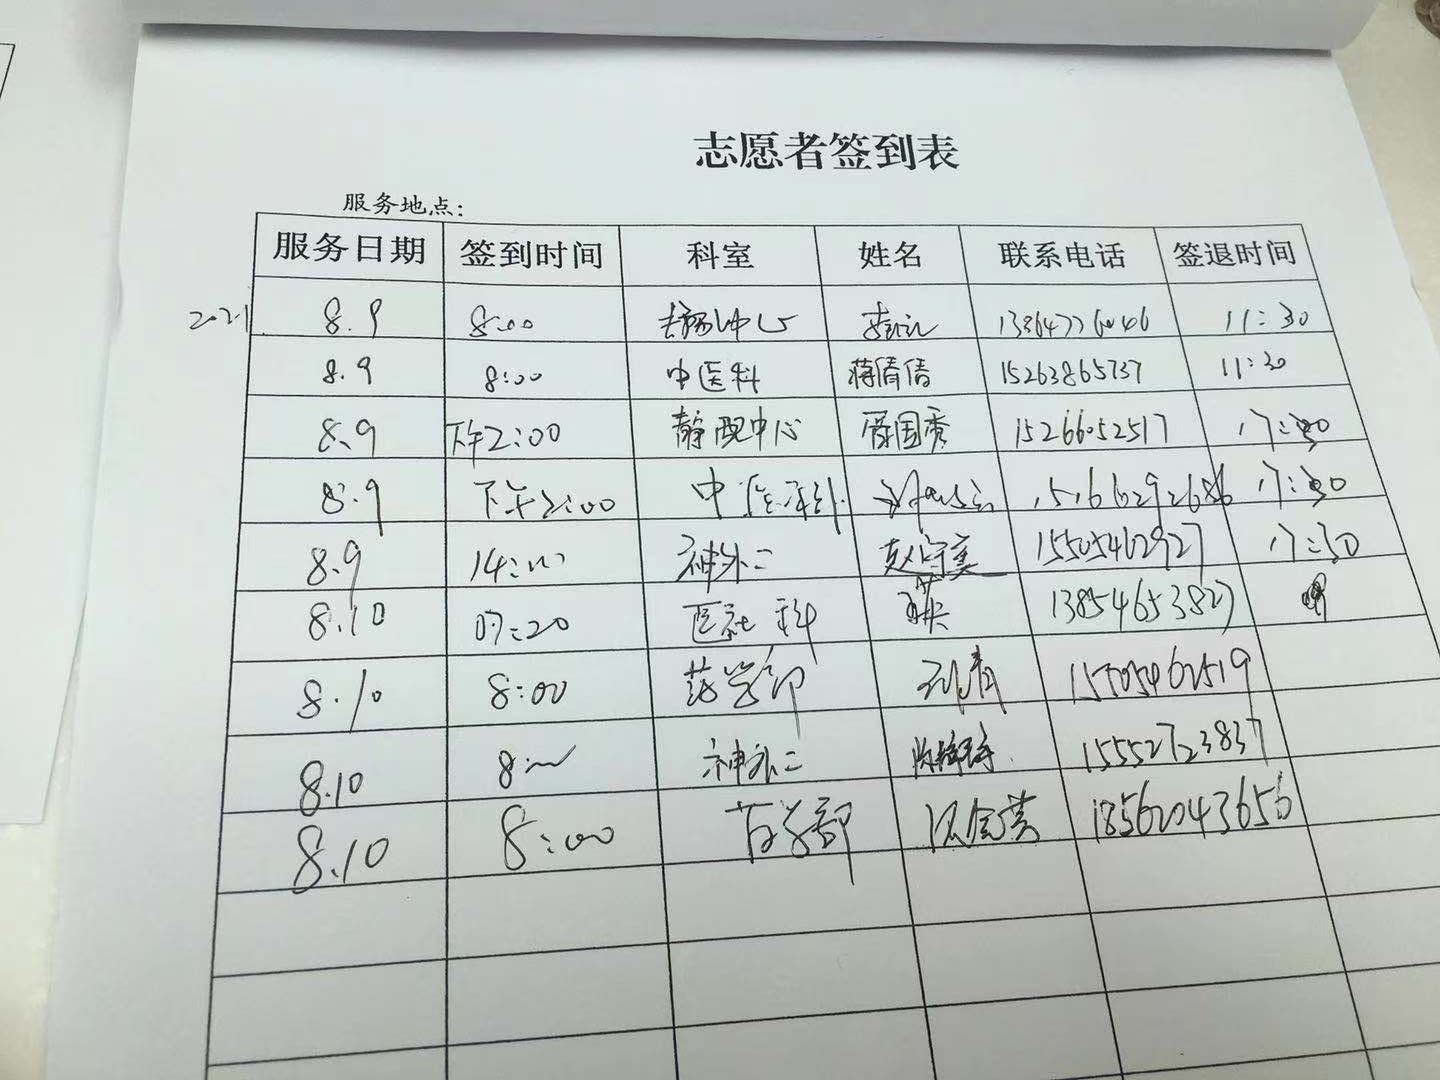 志愿者签到表
服务地点:
服务日期 签到时间 科室 姓名 联系电话 签退时间
2021 8.9 8:00 中心 11:30
8.9 8:00 中医科 蒋倩倩 15263865737 11:30
8.9 下午2:00 静配中心 国秀 15266052517 17:30
8.9 下午2:00 中 15166292686 17:30
8.9 14:00 神外二 赵守美 15505462927 17:30
8.10 07:20 医社科 13854653827
8.10 8:00 药学部 15505462519
8.10 8:00 神外二 15552723837
8.10 8:00 药学部 18562043656